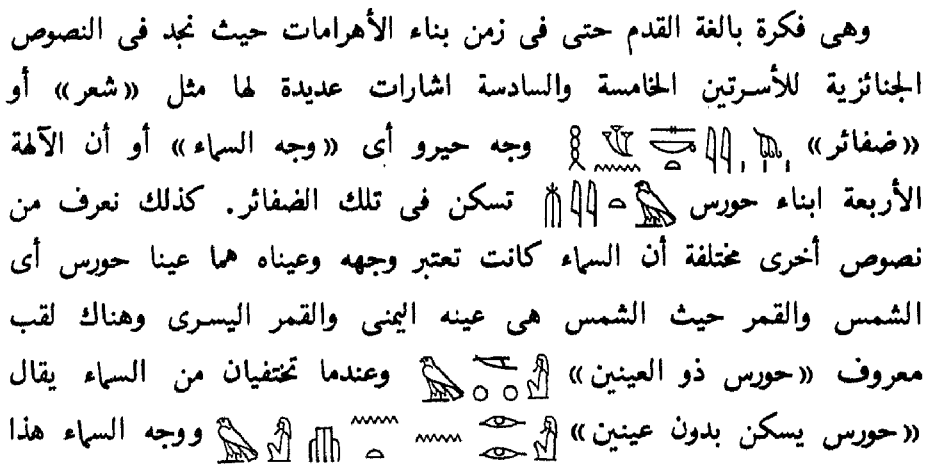 وهى فكرة بالغة القدم حتى فى زمن بناء الأهرامات حيث نجد فى النصوص
الجنائزية للأسرتين الخامسة والسادسة اشارات عديدة لها مثل «شعر» أو
«ضفائر» وجه حيرو أى «وجه السماء» أو أن الآلهة
الأربعة ابناء حورس تسكن فى تلك الضفائر. كذلك نعرف من
نصوص أخرى مختلفة أن السماء كانت تعتبر وجهه وعيناه هما عينا حورس أى
الشمس والقمر حيث الشمس هى عينه اليمنى والقمر اليسرى وهناك لقب
معروف «حورس ذو العينين» وعندما تختفيان من السماء يقال
«حورس يسكن بدون عينين» ووجه السماء هذا